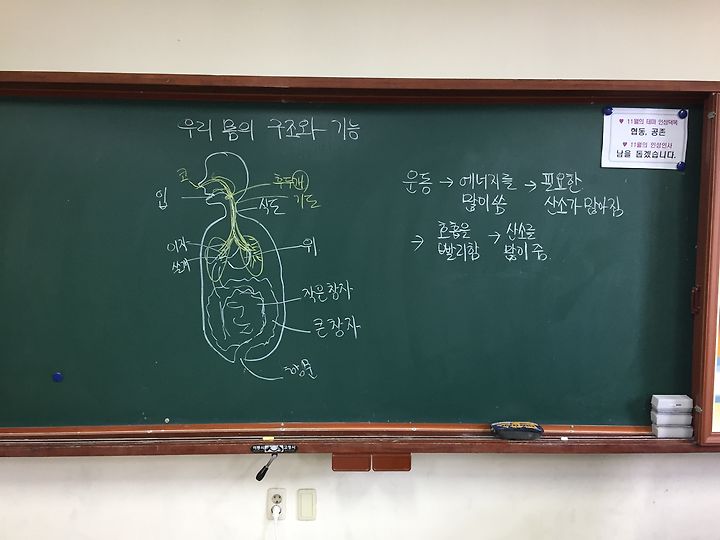 우리 몸의 구조와 기능
코
후두개
입
식도
기도
이자
위
쓸개
작은창자
큰창자
항문
운동 → 에너지를 → 필요한
많이 씀
산소가 많아짐
→ 호흡을 → 산소를
빨리함
많이 줌
♥ 11월의 테마 인성덕목
협동, 공존
♥ 11월의 인성인사
남을 돕겠습니다.